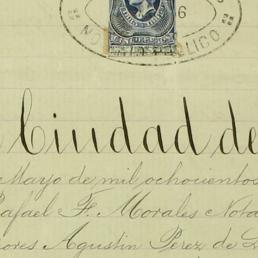 6
NOTARIO PUBLICO
Ciudad de
Mayo de mil ochocientos
Rafael F. Morales Nota
ores Agustin Perez de L